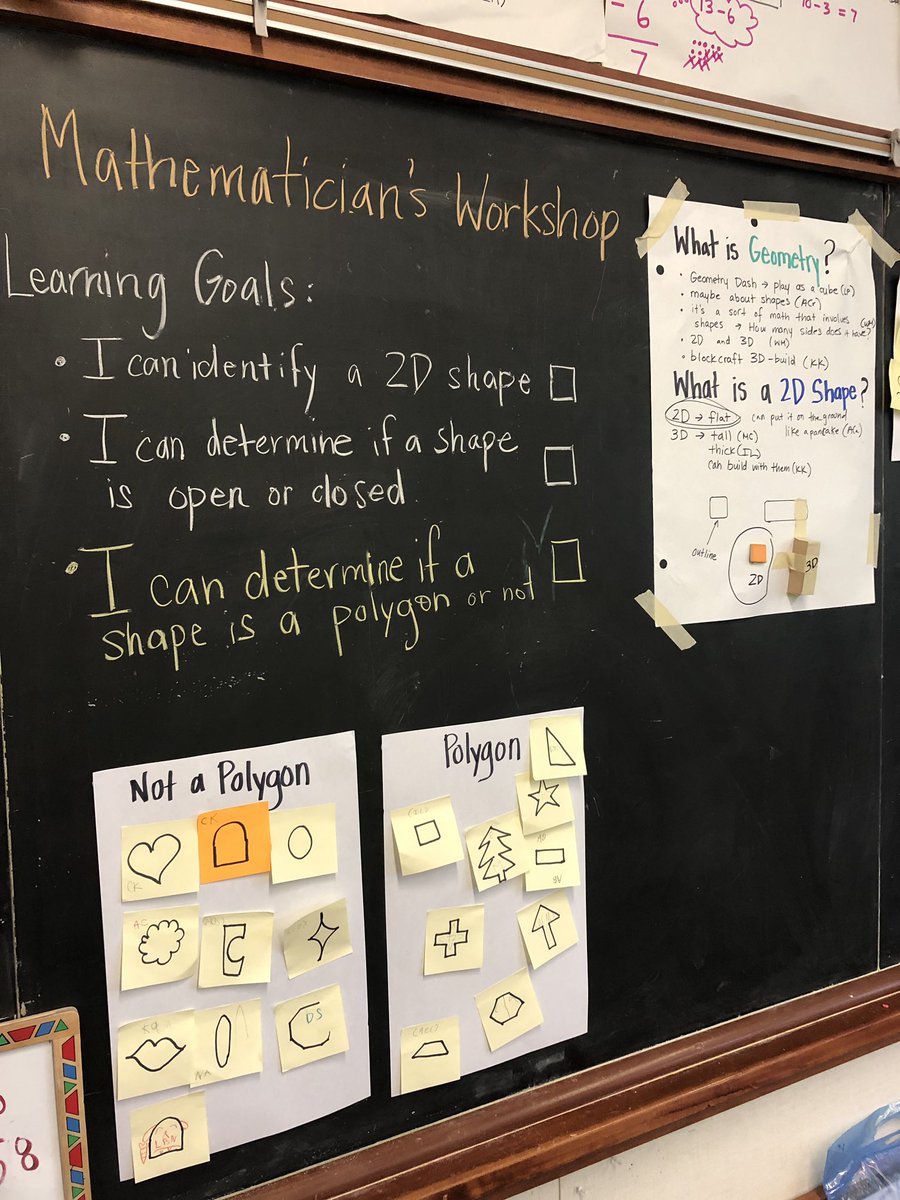 - 6
7
13-6
10-3=7
Mathematician's Workshop
Learning Goals:
• I can identify a 2D shape
• I can determine if a shape
is open or closed.
• I can determine if a
shape is a polygon or not
What is Geometry?
• Geometry Dash → play as a cube (LP)
• maybe about shapes (ACr)
• it's a sort of math that involves
shapes → How many sides does it have?
• 2D and 3D (WH)
• blockcraft 3D-build (KK)
What is a 2D Shape?
2D → flat can put it on the ground
like a pancake (ACr)
3D → tall (MC)
thick (IL)
can build with them (KK)
outline
2D
3D
Not a Polygon
CK
CK
AC
KQ
NA
DS
LRN
Polygon
AD
8